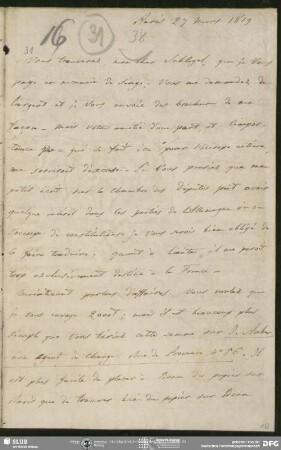 Paris 27 mars 1819
16 31 38
31
Vous trouverez, mon cher Schlegel, que je vous
paye en monnaie de singe. Vous me demandez de
l'argent et je vous envoie des brochures de ma
façon - mais votre amitié d'une part, et l'impor-
tance de ce qui se fait ici pour l'Europe entière,
me serviront d'excuse. Si vous pensiez que mon
petit écrit sur la chambre des députés pût avoir
quelque intérêt dans les parties de l'Allemagne où on
s'occupe de constitutions je vous serais bien obligé de
le faire traduire; quant à l'autre, il me paroit
trop exclusivement destiné à la France -
Maintenant parlons d'affaires. Vous voulez que
je vous envoye 2000 f; mais il est beaucoup plus
simple que vous tiriez cette somme sur
mon agent de change rue de Provence n° 56. Il
est plus facile de placer à Bonn du papier sur
Paris que de trouver ici du papier sur Bonn
SLUB
DFG